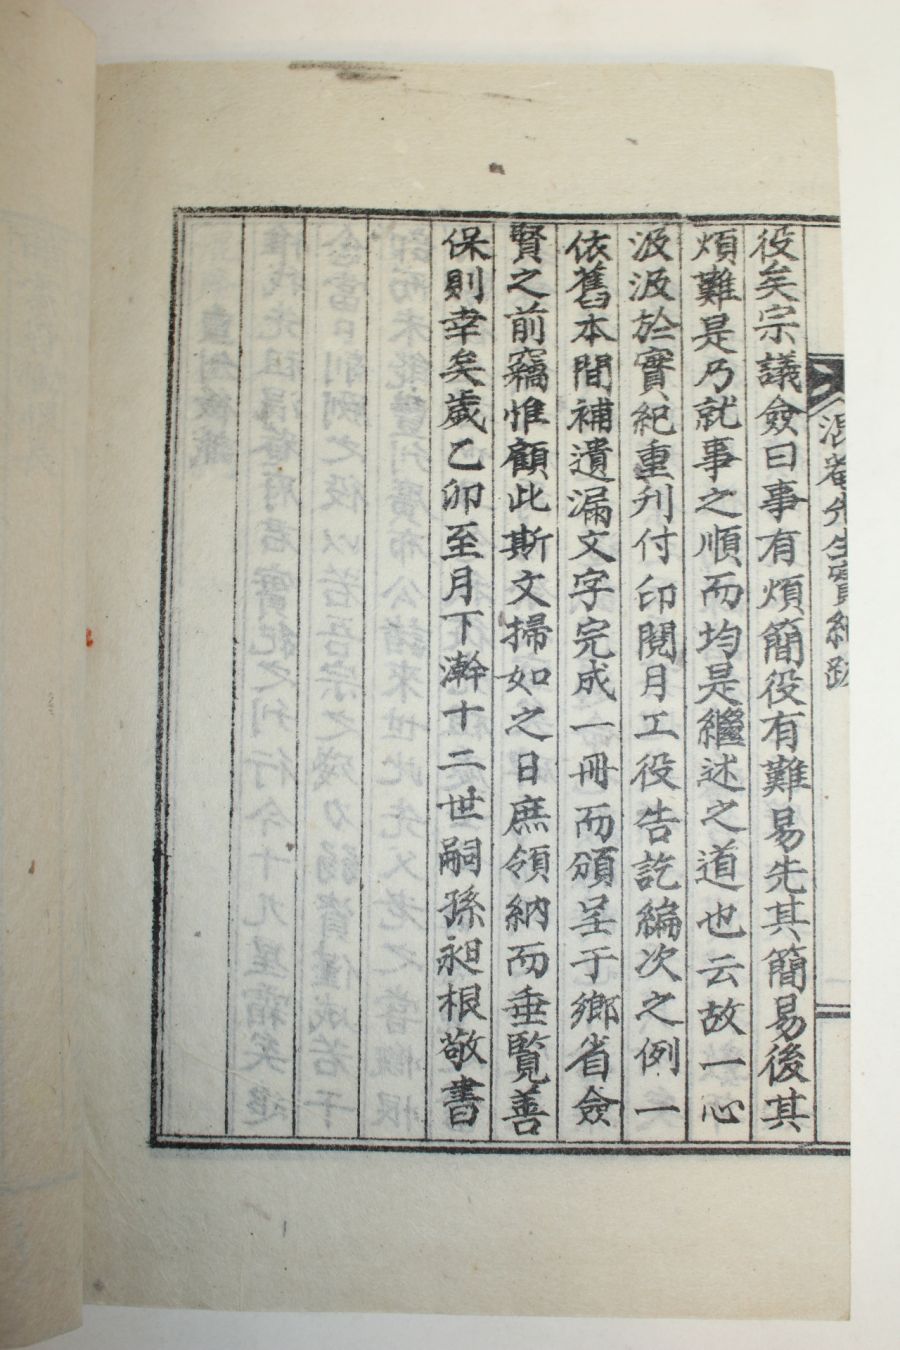 役矣宗議僉曰事有煩簡役有難易先其簡易後其
煩難是乃就事之順而均是繼述之道也云故一心
汲汲於實紀重刊付印閱月工役告訖編次之例一
依舊本間補遺漏文字完成一冊而頒呈于鄉省僉
賢之前竊惟顧此斯文掃如之日庶領納而垂覽善
保則幸矣歲乙卯至月下澣十二世嗣孫昶根敬書
菴先生實紀跋